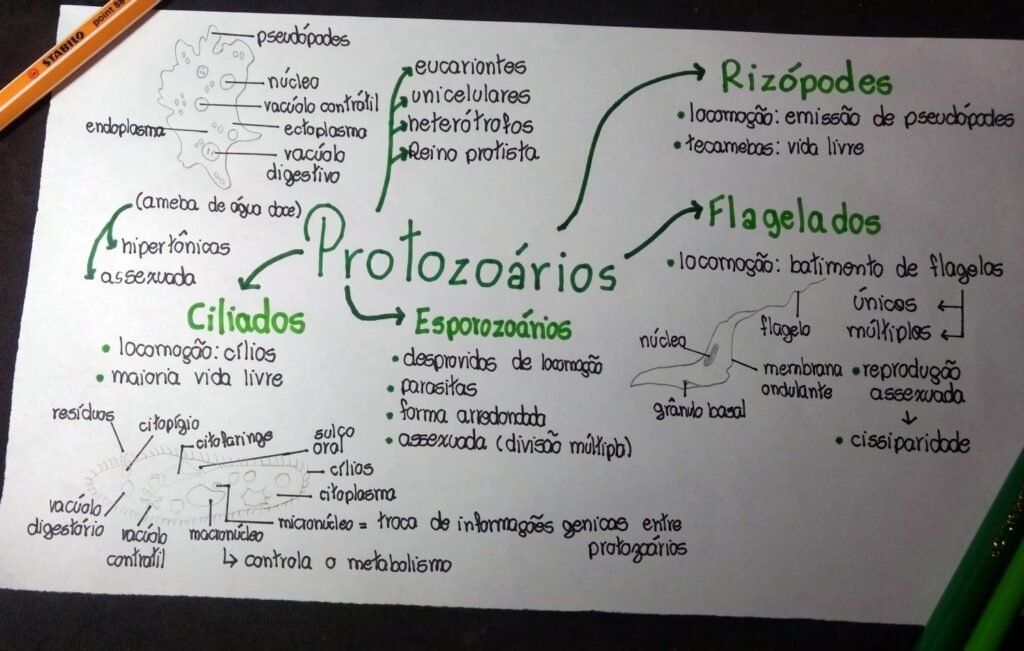 STABILO
point 88
pseudópodes
núcleo
vacúolo contrátil
endoplasma
ectoplasma
vacúolo
digestivo
(ameba de água doce)
hipertônicas
assexuada
eucariontes
unicelulares
heterótrofos
Reino protista
Protozoários
Rizópodes
• locomoção: emissão de pseudópodes
• tecamebas: vida livre
Flagelados
• locomoção: batimento de flagelos
únicos
múltiplos
flagelo
núcleo
membrana
ondulante
grânulo basal
• reprodução
assexuada
• cissiparidade
Ciliados
• locomoção: cílios
• maioria vida livre
Esporozoários
• desprovidos de locomoção
• parasitas
• forma arredondada
• assexuada (divisão múltipla)
resíduos
citopígio
citofaringe
sulco
oral
cílios
citoplasma
vacúolo
digestório
vacúolo
contrátil
macronúcleo
micronúcleo = troca de informações genicas entre
protozoários
↳ controla o metabolismo